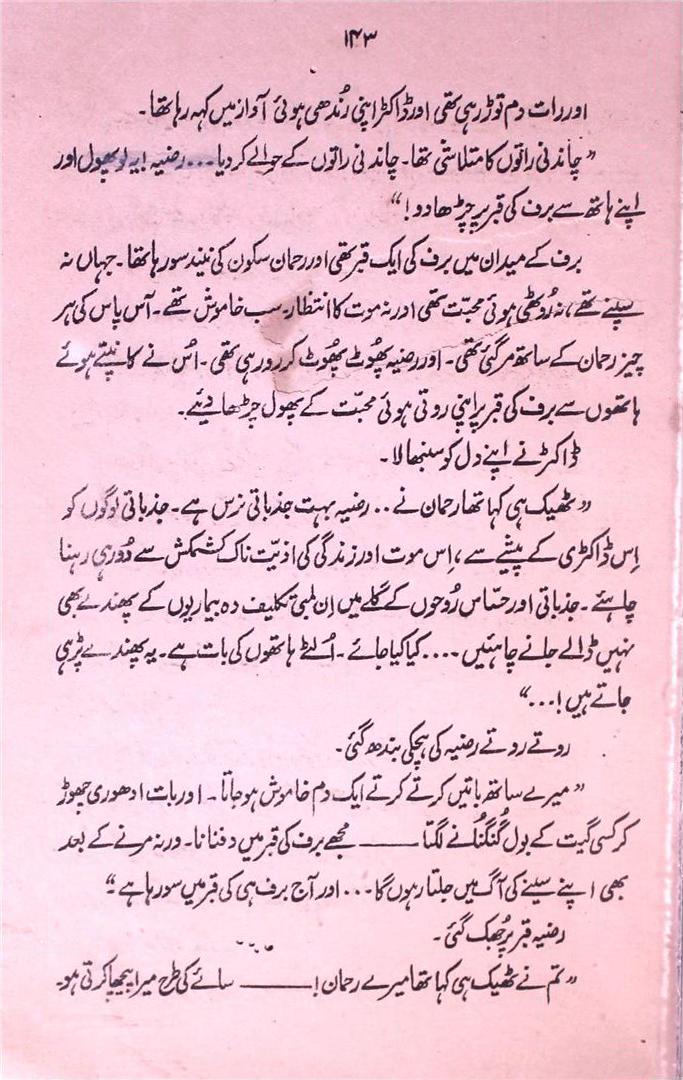 ۱۴۳
اور رات دم توڑ رہی تھی اور ڈاکٹر اپنی رُندھی ہوئی آواز میں کہہ رہا تھا۔
”چاندنی راتوں کا متلاشی تھا۔ چاندنی راتوں کے حوالے کر دیا... رضیہ! یہ لو پھول اور
اپنے ہاتھ سے برف کی قبر پر چڑھا دو!“
برف کے میدان میں برف کی ایک قبر تھی اور رحمان سکون کی نیند سو رہا تھا۔ جہاں نہ
سپنے تھے، نہ رُوٹھی ہوئی محبّت تھی اور نہ موت کا انتظار۔ سب خاموش تھے۔ آس پاس کی ہر
چیز رحمان کے ساتھ مر گئی تھی۔ اور رضیہ پھُوٹ پھُوٹ کر رو رہی تھی۔ اُس نے کانپتے ہوئے
ہاتھوں سے برف کی قبر پر اپنی روتی ہوئی محبّت کے پھول چڑھا دیئے۔
ڈاکٹر نے اپنے دل کو سنبھالا۔
”ٹھیک ہی کہا تھا رحمان نے.. رضیہ بہت جذباتی نرس ہے۔ جذباتی لوگوں کو
اِس ڈاکٹری کے پیشے سے، اِس موت اور زندگی کی اذیّت ناک کشمکش سے دُور ہی رہنا
چاہئے۔ جذباتی اور حسّاس رُوحوں کے گلے میں اِن لمبی تکلیف دہ بیماریوں کے پھندے بھی
نہیں ڈالے جانے چاہئیں.... کیا کیا جائے۔ اُلٹے ہاتھوں کی بات ہے۔ یہ پھندے پڑ ہی
جاتے ہیں!...“
روتے روتے رضیہ کی ہچکی بندھ گئی۔
”میرے ساتھ باتیں کرتے کرتے ایک دم خاموش ہو جاتا۔ اور بات ادھوری چھوڑ
کر کسی گیت کے بول گُنگنانے لگتا ——— مجھے برف کی قبر میں دفنانا۔ ورنہ مرنے کے بعد
بھی اپنے سینے کی آگ میں جلتا رہوں گا... اور آج برف ہی کی قبر میں سو رہا ہے۔“
رضیہ قبر پر جُھک گئی۔
”تم نے ٹھیک ہی کہا تھا میرے رحمان! ——— سائے کی طرح میرا پیچھا کرتی ہو۔